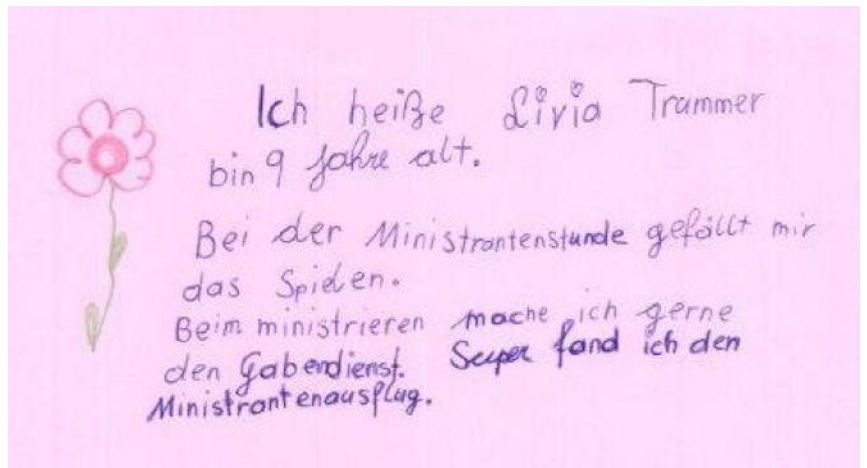 Ich heiße Livia Trammer
bin 9 Jahre alt.
Bei der Ministrantenstunde gefällt mir
das Spielen.
Beim ministrieren mache ich gerne
den Gabendienst. Super fand ich den
Ministrantenausflug.